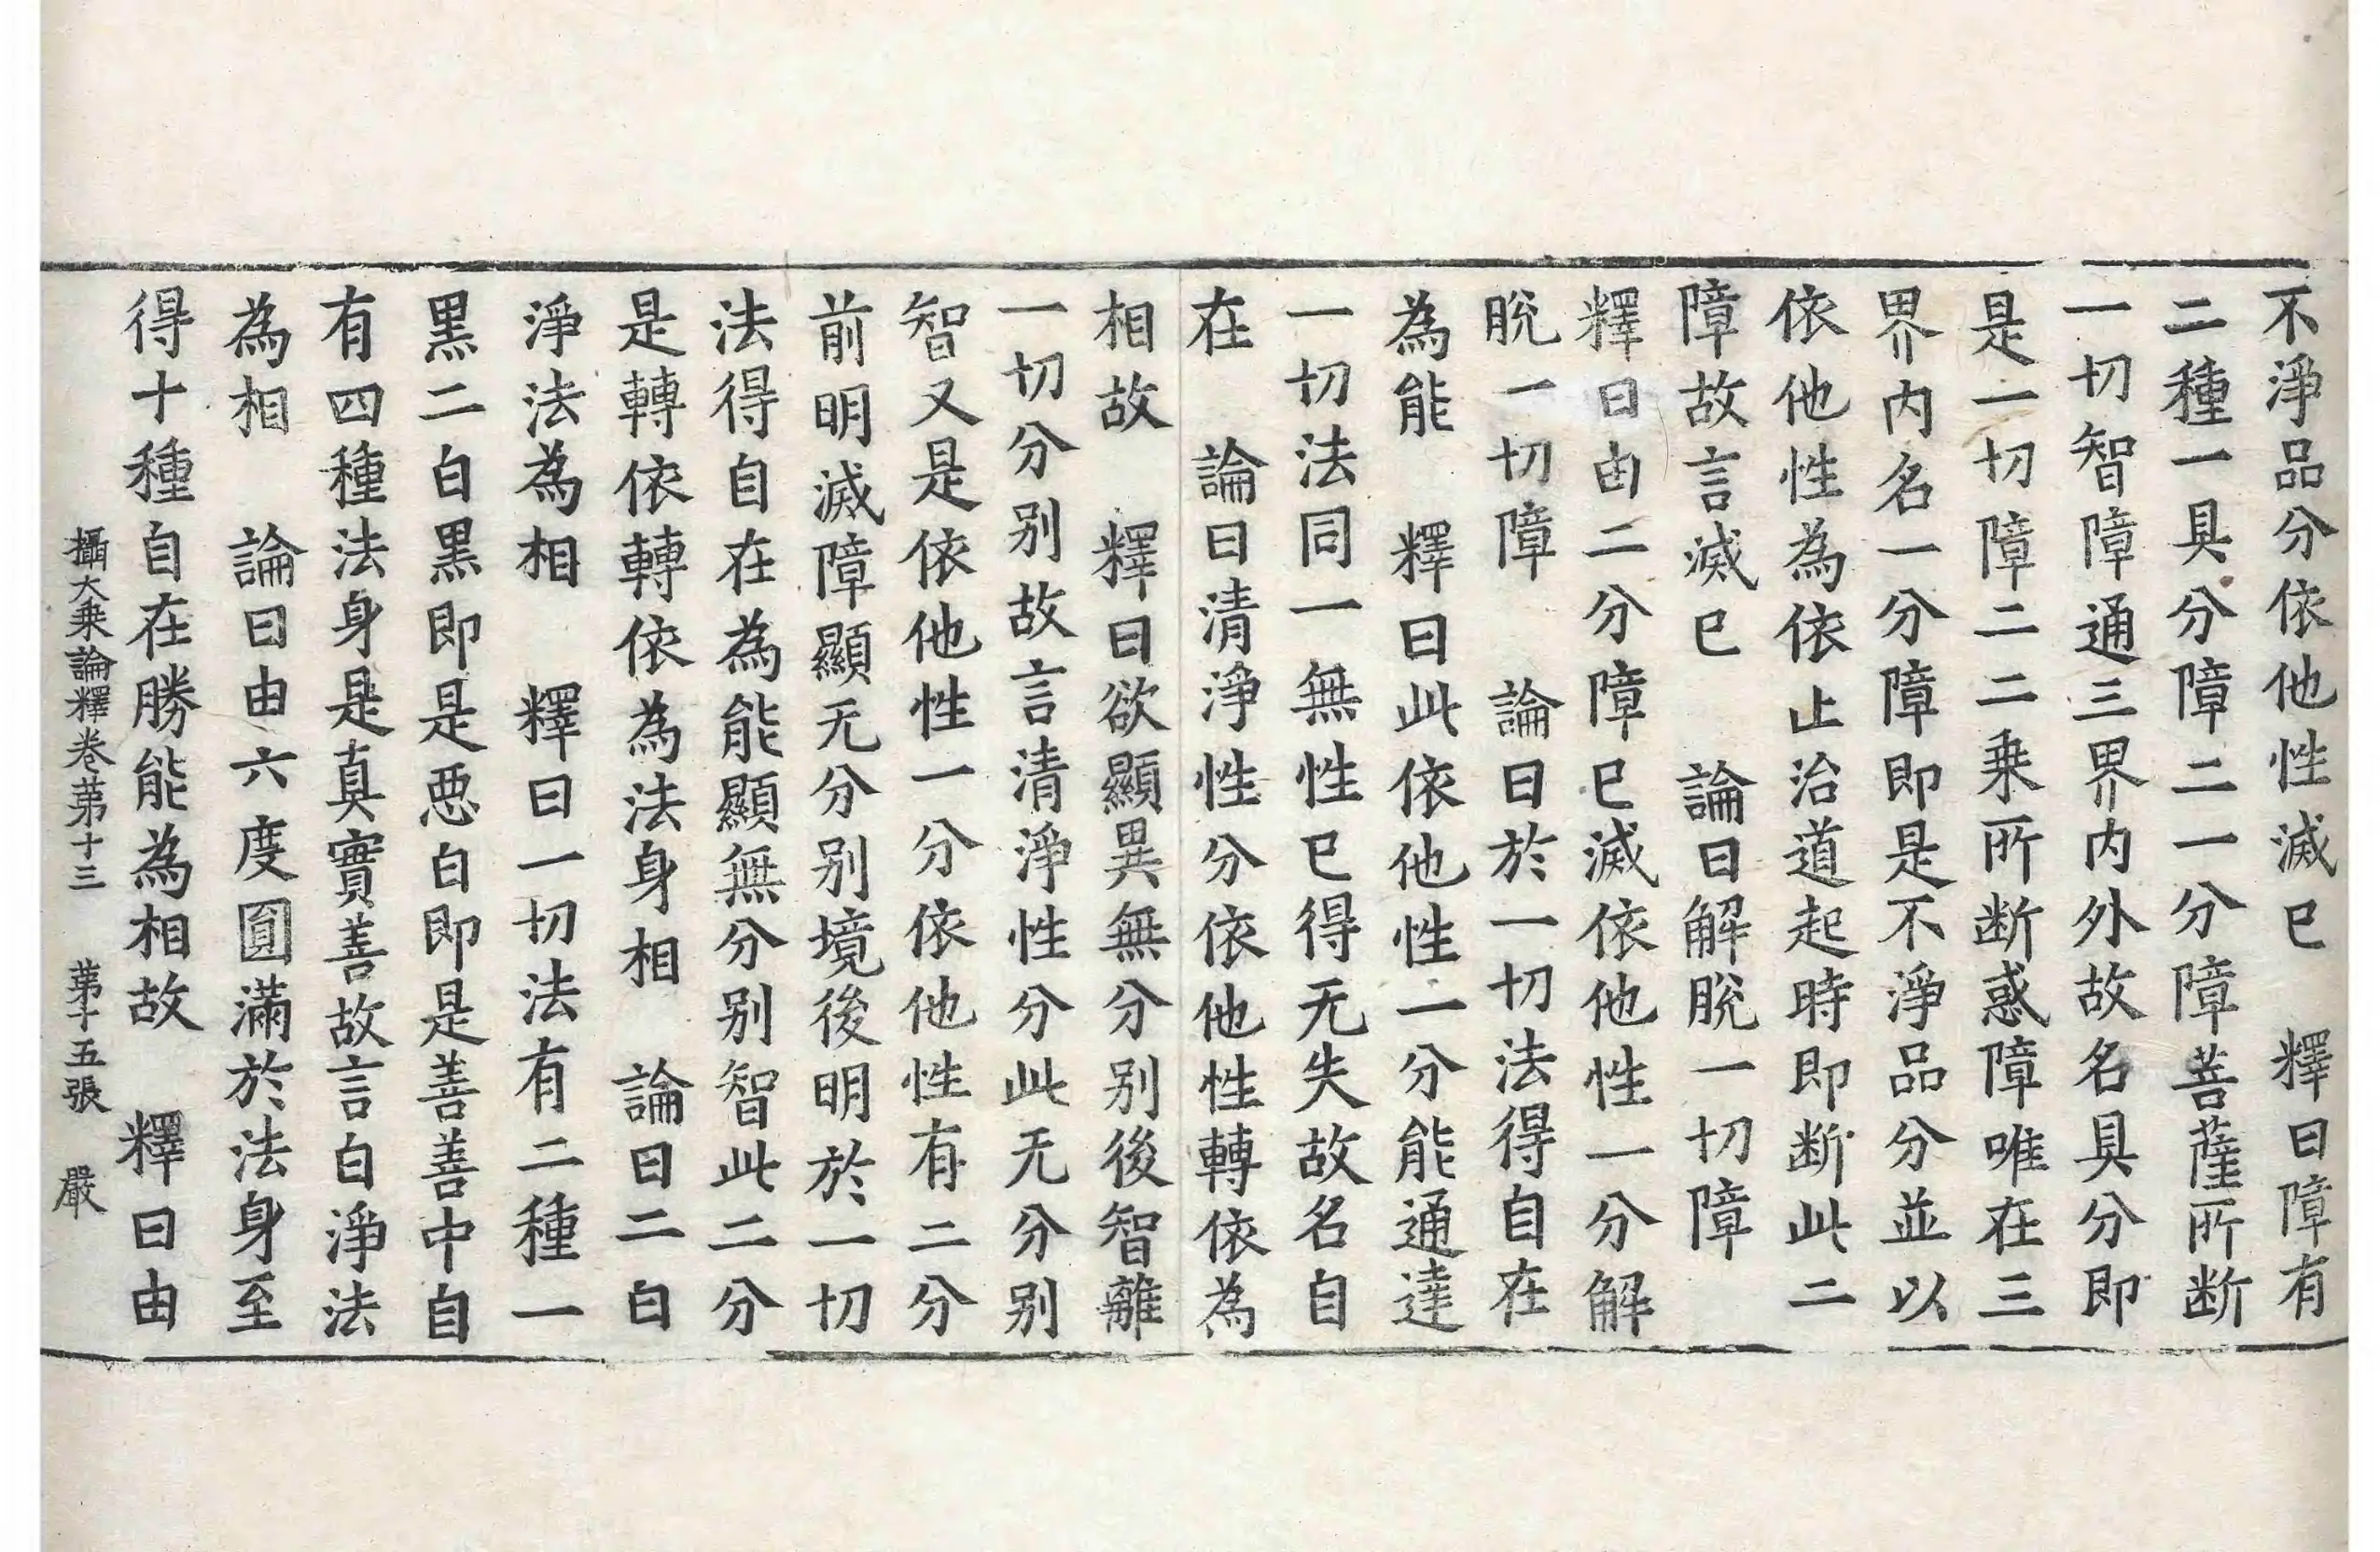 不淨品分依他性滅已　釋曰障有
二種一具分障二一分障菩薩所断
一切智障通三界内外故名具分即
是一切障二二乗所断惑障唯在三
界内名一分障即是不淨品分並以
依他性為依止治道起時即断此二
障故言滅已　論曰解脫一切障
釋曰由二分障已滅依他性一分解
脫一切障　論曰於一切法得自在
為能　釋曰此依他性一分能通達
一切法同一無性已得无失故名自
在　論曰清淨性分依他性轉依為
相故　釋曰欲顯異無分别後智離
一切分别故言清淨性分此无分别
智又是依他性一分依他性有二分
前明滅障顯无分别境後明於一切
法得自在為能顯無分别智此二分
是轉依轉依為法身相　論曰二白
淨法為相　釋曰一切法有二種一
黒二白黒即是惡白即是善善中自
有四種法身是真實善故言白淨法
為相　論曰由六度圓滿於法身至
得十種自在勝能為相故　釋曰由
攝大乗論釋卷苐十三　苐十五張　嚴